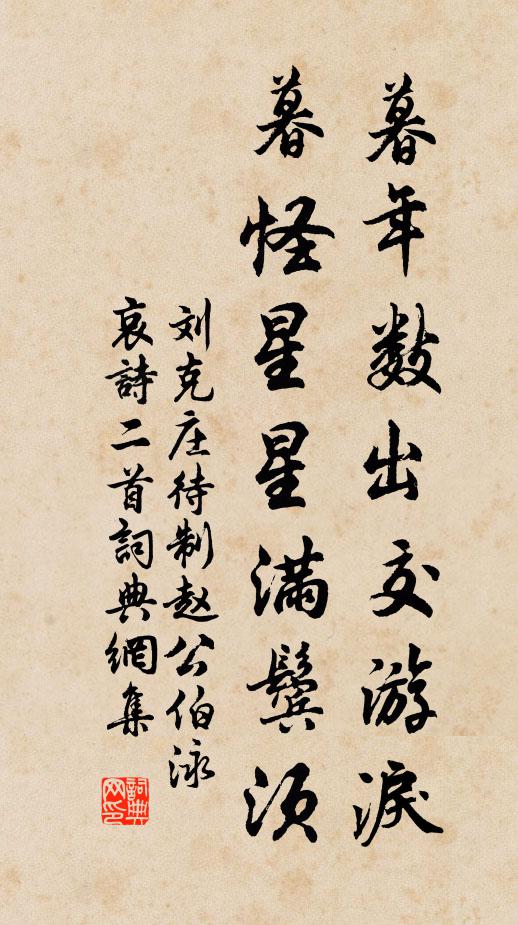 暮年数出交游淚
暮怪星星滿鬓须
刘克庄待制赵公伯泳
哀詩二首詞典網集
詞典网印